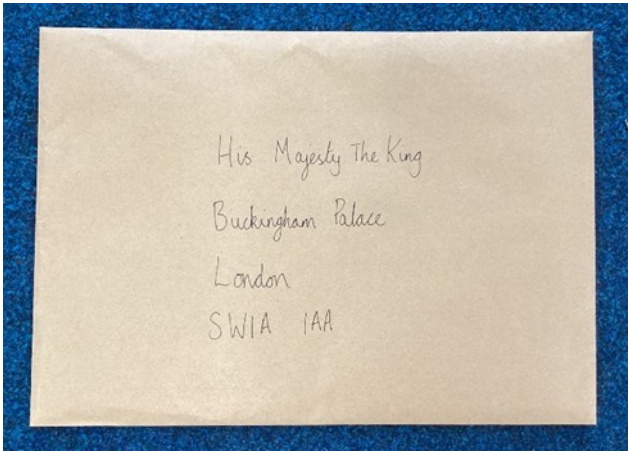 His Majesty The King
Buckingham Palace
London
SW1A 1AA